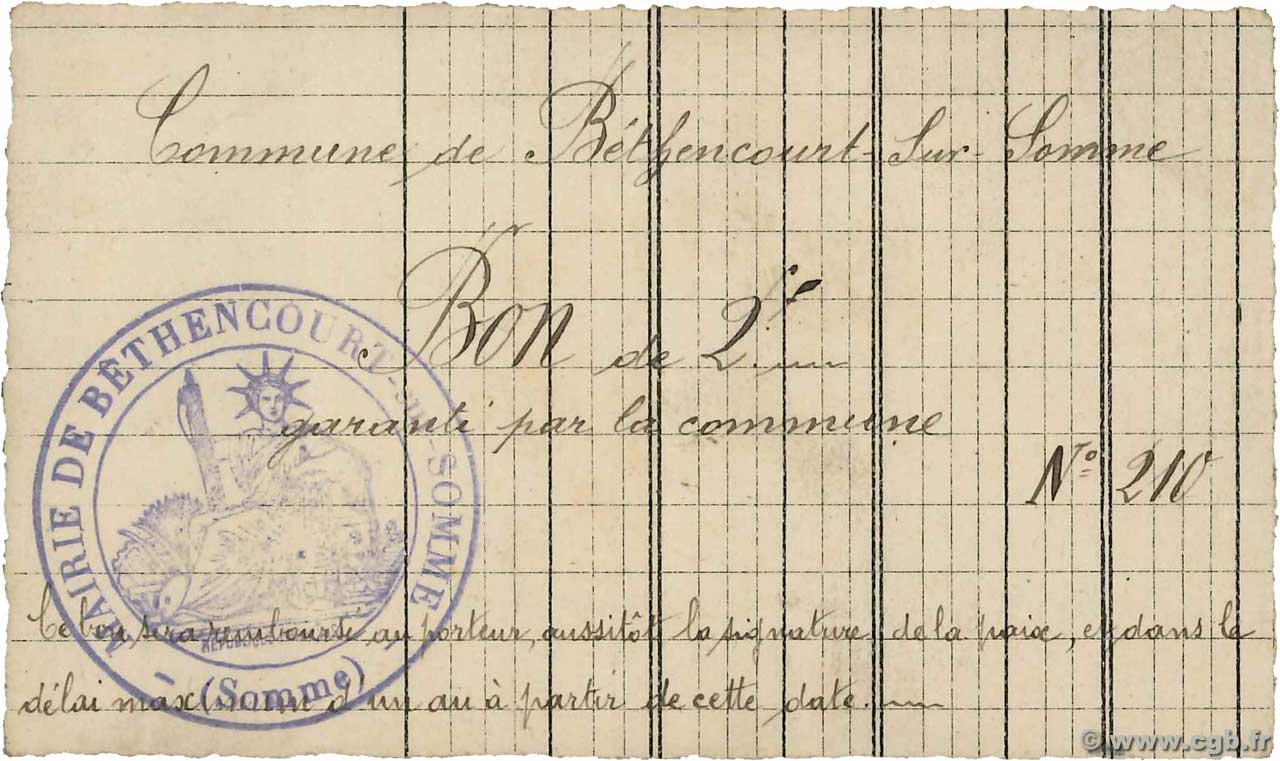 Commune de Béthencourt-sur-Somme
Bon de 2 f
garanti par la commune
N° 210
MAIRIE DE BÉTHENCOURT-SUR-SOMME
RÉPUBLIQUE
(Somme)
Ce bon sera remboursé au porteur, aussitôt la signature de la paix, et dans le
délai maximum d'un an à partir de cette date.
© www.cgb.fr